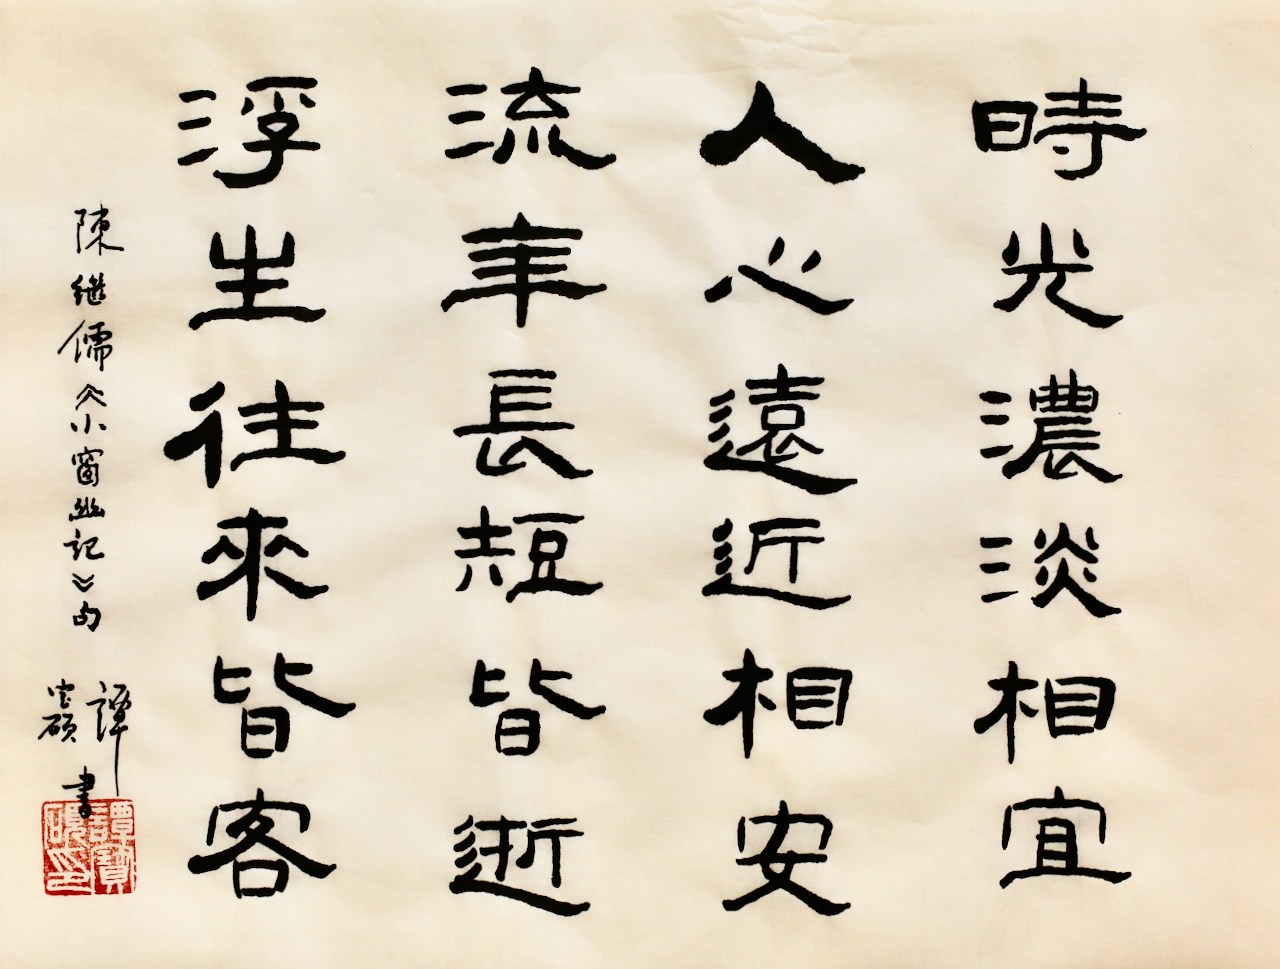 時光濃淡相宜
人心遠近相安
流年長短皆逝
浮生往來皆客
陳继儒《小窗幽记》句
譚
書